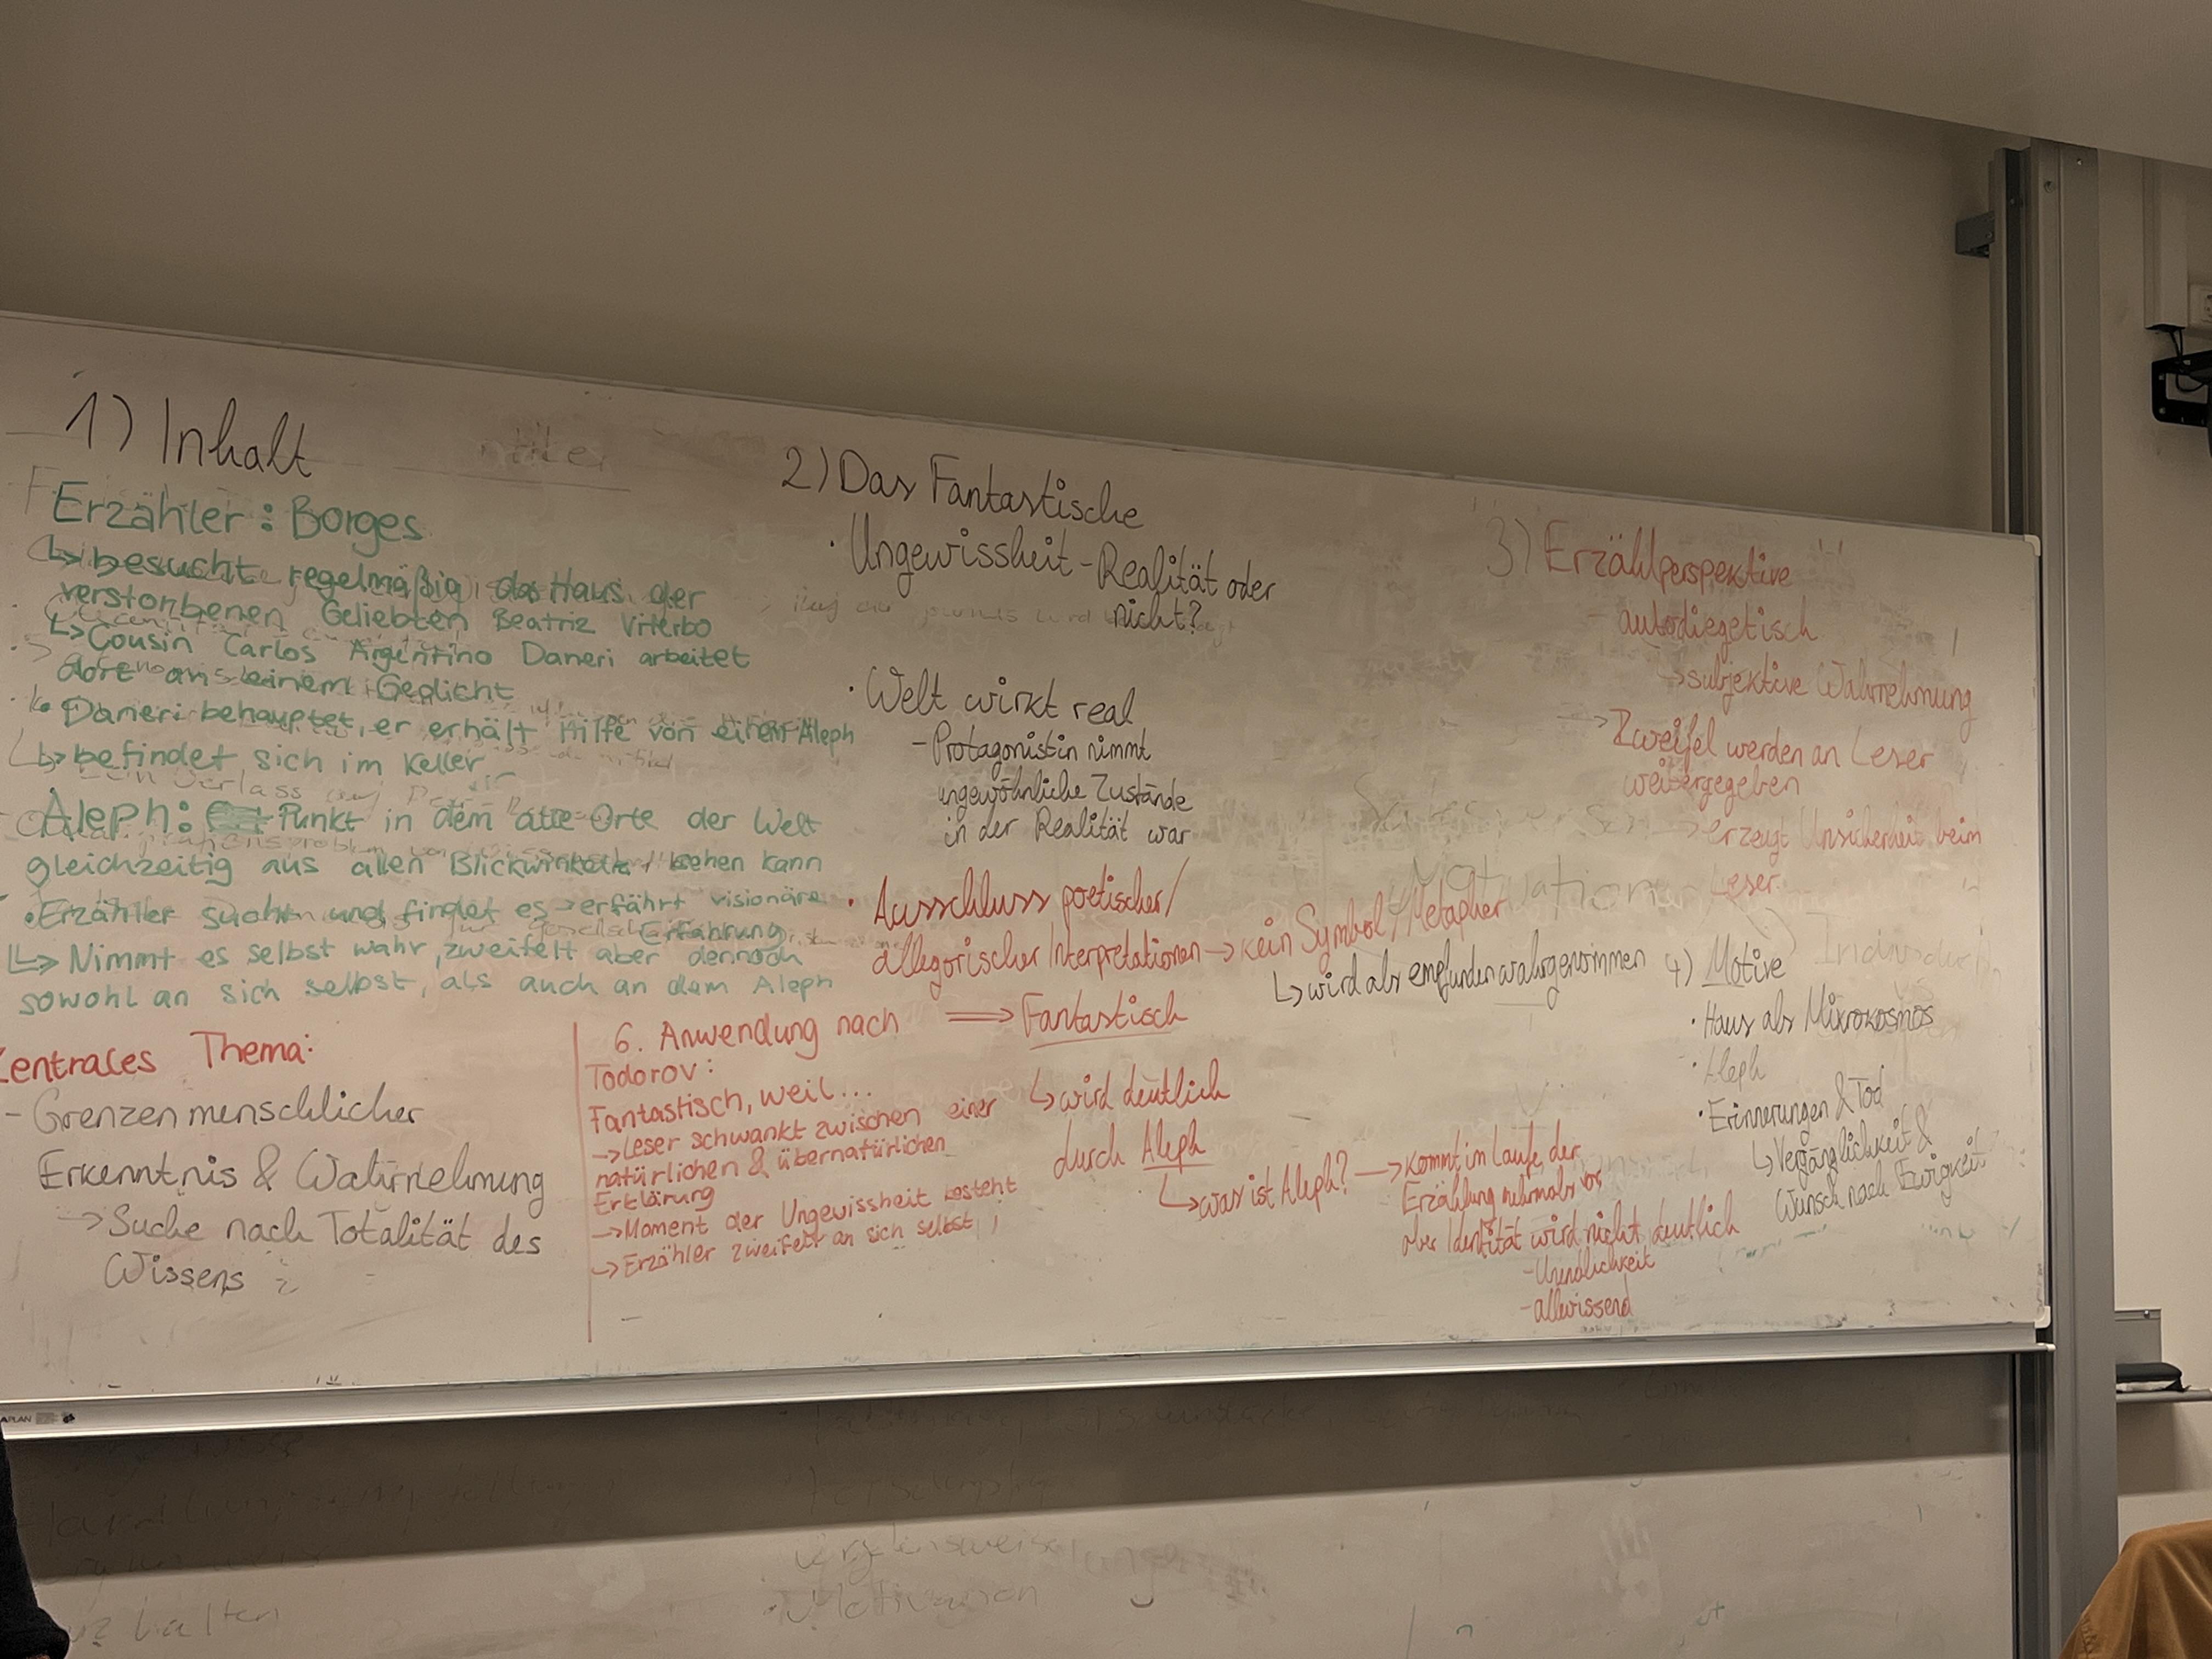 1) Inhalt
Erzähler: Borges
↳ besucht regelmäßig das Haus der
verstorbenen Geliebten Beatriz Viterbo
↳ Cousin Carlos Argentino Daneri arbeitet
dort an einem Gedicht
• Daneri behauptet, er erhält Hilfe von einem Aleph
↳ befindet sich im Keller
Aleph: Punkt in dem alle Orte der Welt
gleichzeitig aus allen Blickwinkeln sehen kann
• Erzähler sucht und findet es → erfährt visionäre
Erfährung
↳ Nimmt es selbst wahr, zweifelt aber dennoch
sowohl an sich selbst, als auch an dem Aleph
Zentrales Thema:
- Grenzen menschlicher
Erkenntnis & Wahrnehmung
→ Suche nach Totalität des
Wissens
2) Das Fantastische
• Ungewissheit - Realität oder
nicht?
• Welt wirkt real
- Protagonistin nimmt
ungewöhnliche Zustände
in der Realität war
• Ausschluss poetischer/
allegorischer Interpretationen → kein Symbol/Metapher
↳ wird als empfunden wahrgenommen
⇒ Fantastisch
↳ wird deutlich
durch Aleph
↳ was ist Aleph? → kommt im Laufe der
Erzählung mehrmals vor
aber Identität wird nicht deutlich
- Unendlichkeit
- allwissend
6. Anwendung nach
Todorov:
Fantastisch, weil...
→ Leser schwankt zwischen einer
natürlichen & übernatürlichen
Erklärung
→ Moment der Ungewissheit besteht
→ Erzähler zweifelt an sich selbst
3) Erzählperspektive
- autodiegetisch
↳ subjektive Wahrnehmung
→ Zweifel werden an Leser
weitergegeben
→ erzeugt Unsicherheit beim
Leser
4) Motive
• Haus als Mikrokosmos
• Aleph
• Erinnerungen & Tod
↳ Vergänglichkeit &
Wunsch nach Ewigkeit
Motivation
Motivation